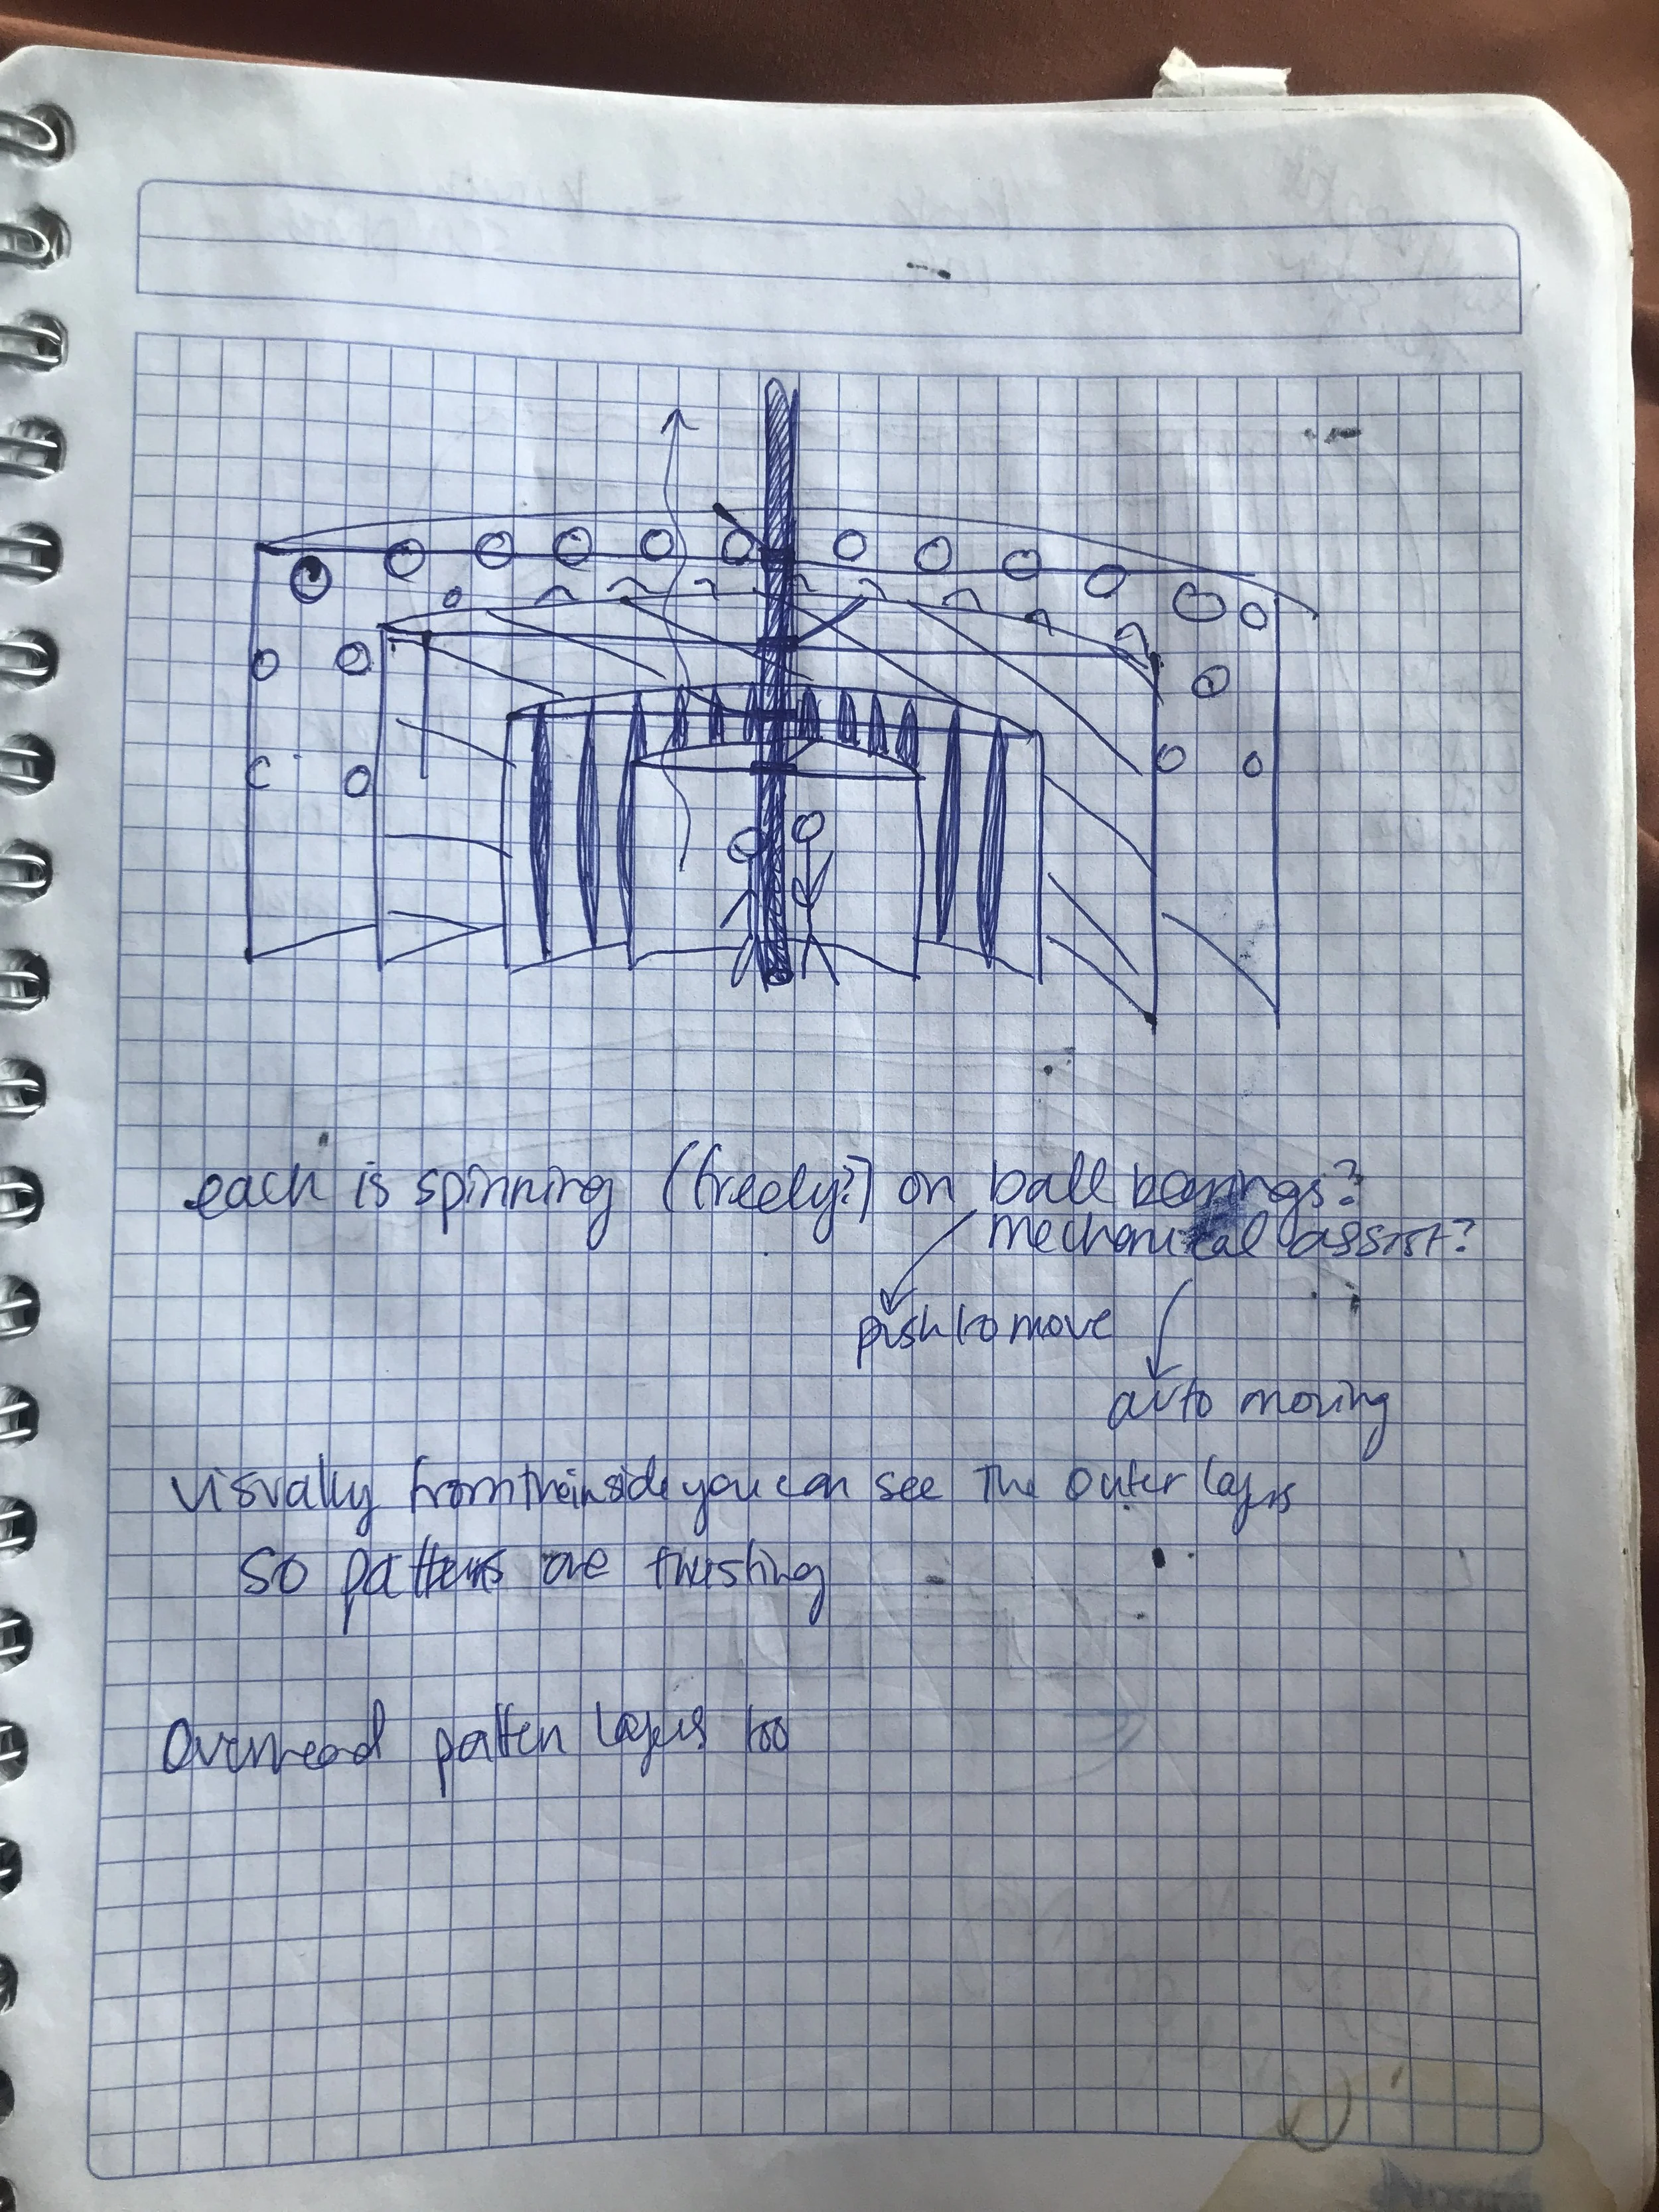 each is spinning (freely?) on ball bearings?
mechanical assist?
push to move
auto moving
visually from the inside you can see the outer layers
so patterns are twisting
Overhead pattern layers too